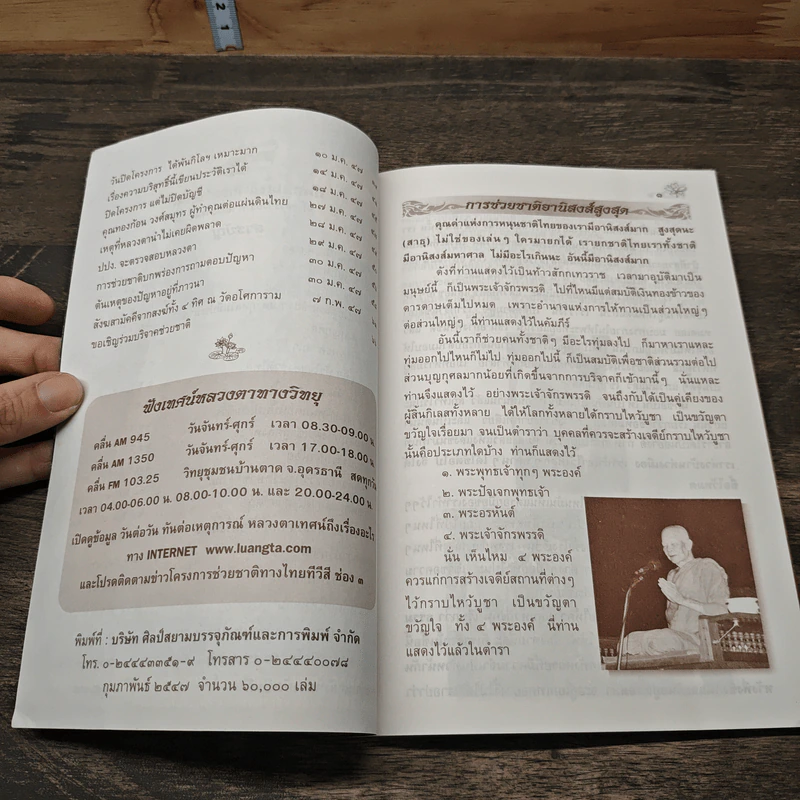 วันปิดโครงการ ได้พันกิโลฯ เหมาะมาก ๑๐ ม.ค. ๔๗
เรื่องความบริสุทธิ์นี้เขียนประวัติเราได้ ๑๔ ม.ค. ๔๗
ปิดโครงการ แต่ไม่ปิดบัญชี ๑๘ ม.ค. ๔๗
คุณทองก้อน วงศ์สมุทร ผู้ทำคุณต่อแผ่นดินไทย ๒๗ ม.ค. ๔๗
เหตุที่หลวงตานำไม่เคยผิดพลาด ๒๘ ม.ค. ๔๗
ปปง. จะตรวจสอบหลวงตา ๒๙ ม.ค. ๔๗
การช่วยชาติบกพร่องการถามตอบปัญหา ๓๐ ม.ค. ๔๗
ต้นเหตุของปัญหาอยู่ที่ภาวนา ๓๐ ม.ค. ๔๗
สังฆสามัคคีจากสงฆ์ทั้ง ๔ ทิศ ณ วัดอโศการาม ๗ ก.พ. ๔๗
ขอเชิญร่วมบริจาคช่วยชาติ
ฟังเทศน์หลวงตาทางวิทยุ
คลื่น AM 945 วันจันทร์-ศุกร์ เวลา 08.30-09.00 น.
คลื่น AM 1350 วันจันทร์-ศุกร์ เวลา 17.00-18.00 น.
คลื่น FM 103.25 วิทยุชุมชนบ้านตาด จ.อุดรธานี สดทุกวัน
เวลา 04.00-06.00 น. 08.00-10.00 น. และ 20.00-24.00 น.
เปิดดูข้อมูล วันต่อวัน ทันต่อเหตุการณ์ หลวงตาเทศน์ถึงเรื่องอะไร
ทาง INTERNET www.luangta.com
และโปรดติดตามข่าวโครงการช่วยชาติทางไทยทีวีสี ช่อง ๓
พิมพ์ที่ : บริษัท ศิลป์สยามบรรจุภัณฑ์และการพิมพ์ จำกัด
โทร. ๐-๒๔๔๔๓๓๕๑-๙ โทรสาร ๐-๒๔๔๔๐๐๗๘
กุมภาพันธ์ ๒๕๔๗ จำนวน ๖๐,๐๐๐ เล่ม
๑
การช่วยชาติอานิสงส์สูงสุด
คุณค่าแห่งการหนุนชาติไทยของเรามีอานิสงส์มาก สูงสุดนะ
(สาธุ) ไม่ใช่ของเล่นๆ ใครมายกได้ เรายกชาติไทยเราทั้งชาติ
มีอานิสงส์มหาศาล ไม่มีอะไรเกินนะ อันนี้มีอานิสงส์มาก
ดังที่ท่านแสดงไว้เป็นท้าวสักกเทวราช เวลามาอุบัติมาเป็น
มนุษย์นี้ ก็เป็นพระเจ้าจักรพรรดิ ไปที่ไหนมีแต่สมบัติเงินทองข้าวของ
ดารดาษเต็มไปหมด เพราะอำนาจแห่งการให้ทานเป็นส่วนใหญ่ๆ
ต่อส่วนใหญ่ๆ นี่ท่านแสดงไว้ในคัมภีร์
อันนี้เราก็ช่วยคนทั้งชาติๆ มีอะไรทุ่มลงไป ก็มาหาเราแหละ
ทุ่มออกไปไหนก็ไม่ไป ทุ่มออกไปนี้ ก็เป็นสมบัติเพื่อชาติส่วนรวมต่อไป
ส่วนบุญกุศลมากน้อยที่เกิดขึ้นจากการบริจาคก็เข้ามานี้ๆ นั่นแหละ
ท่านจึงแสดงไว้ อย่างพระเจ้าจักรพรรดิ จนถึงกับได้เป็นคู่เคียงของ
ผู้สิ้นกิเลสทั้งหลาย ได้ให้โลกทั้งหลายได้กราบไหว้บูชา เป็นขวัญตา
ขวัญใจเรื่อยมา จนเป็นตำราว่า บุคคลที่ควรจะสร้างเจดีย์กราบไหว้บูชา
นั้นคือประเภทใดบ้าง ท่านก็แสดงไว้
๑. พระพุทธเจ้าทุกๆ พระองค์
๒. พระปัจเจกพุทธเจ้า
๓. พระอรหันต์
๔. พระเจ้าจักรพรรดิ
นั่น เห็นไหม ๔ พระองค์
ควรแก่การสร้างเจดีย์สถานที่ต่างๆ
ไว้กราบไหว้บูชา เป็นขวัญตา
ขวัญใจ ทั้ง ๔ พระองค์ นี่ท่าน
แสดงไว้แล้วในตำรา